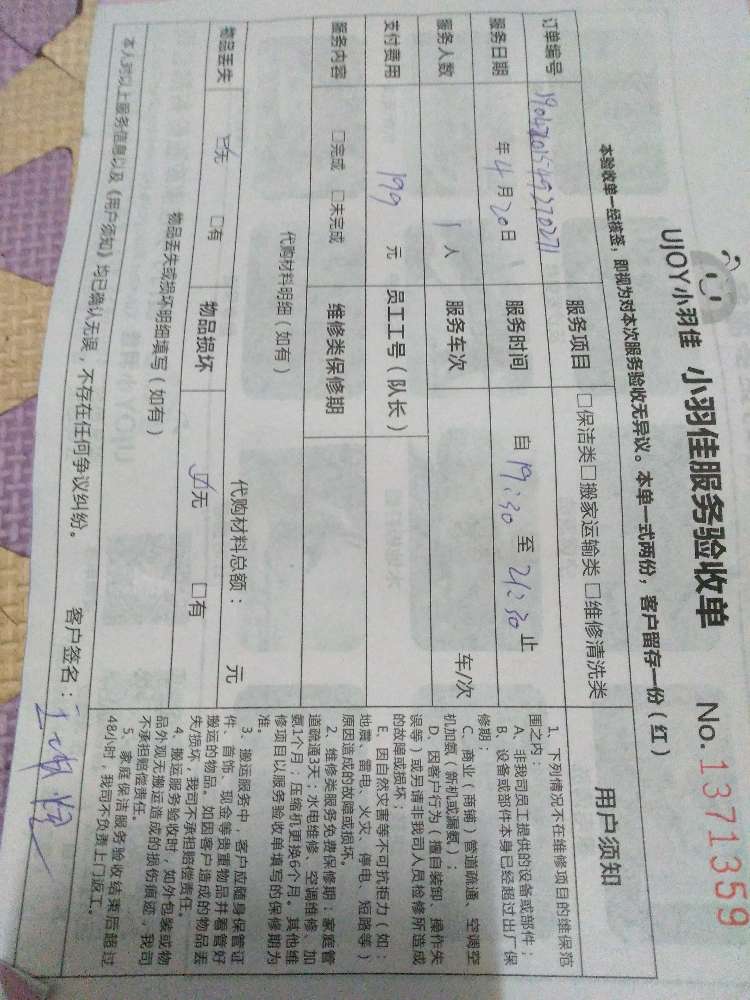 UJOY小羽佳 小羽佳服务验收单 No. 1371359
本验收单一经接签，即视为对本次服务验收无异议。本单一式两份，客户留存一份（红）
订单编号 服务项目 □保洁类□搬家运输类 □维修清洗类
服务日期 年 4 月 20 日 服务时间 自 19:30 至 21:30 止
服务人数 1 人 服务车次 车/次
支付费用 199 元 员工工号（队长）
服务内容 □完成 □未完成 维修类保修期
代购材料明细（如有） 代购材料总额： 元
物品丢失 ☑无 □有 物品损坏 ☑无 □有
物品丢失或损坏明细填写（如有）
本人对以上服务信息以及《用户须知》均已确认无误，不存在任何争议纠纷。 客户签名：
用户须知
1、下列情况不在维修项目的维保范
围之内：
A、非我司员工提供的设备或部件；
B、设备或部件本身已经超过出厂保
修期；
C、商业（商铺）管道疏通、空调空
机加氨（新机或漏氨）；
D、因客户行为（擅自装卸、操作失
误等）或另请非我司人员检修所造成
的故障或损坏；
E、因自然灾害等不可抗拒力（如：
地震、雷电、火灾、停电、短路等）
原因造成的故障或损坏。
2、维修类服务免费保修期：家庭管
道疏通3天；水电维修、空调维修、加
氨1个月；压缩机更换6个月。其他维
修项目以服务验收单填写的保修期为
准。
3、搬运服务中，客户应随身保管证
件、首饰、现金等贵重物品并看管好
搬运的物品。如因客户造成的物品丢
失/损坏，我司不承担赔偿责任。
4、搬运服务验收时，如外包装或物
品外观无搬运造成的损伤痕迹，我司
不承担赔偿责任。
5、家庭保洁服务验收结束后超过
48小时，我司不负责上门返工。